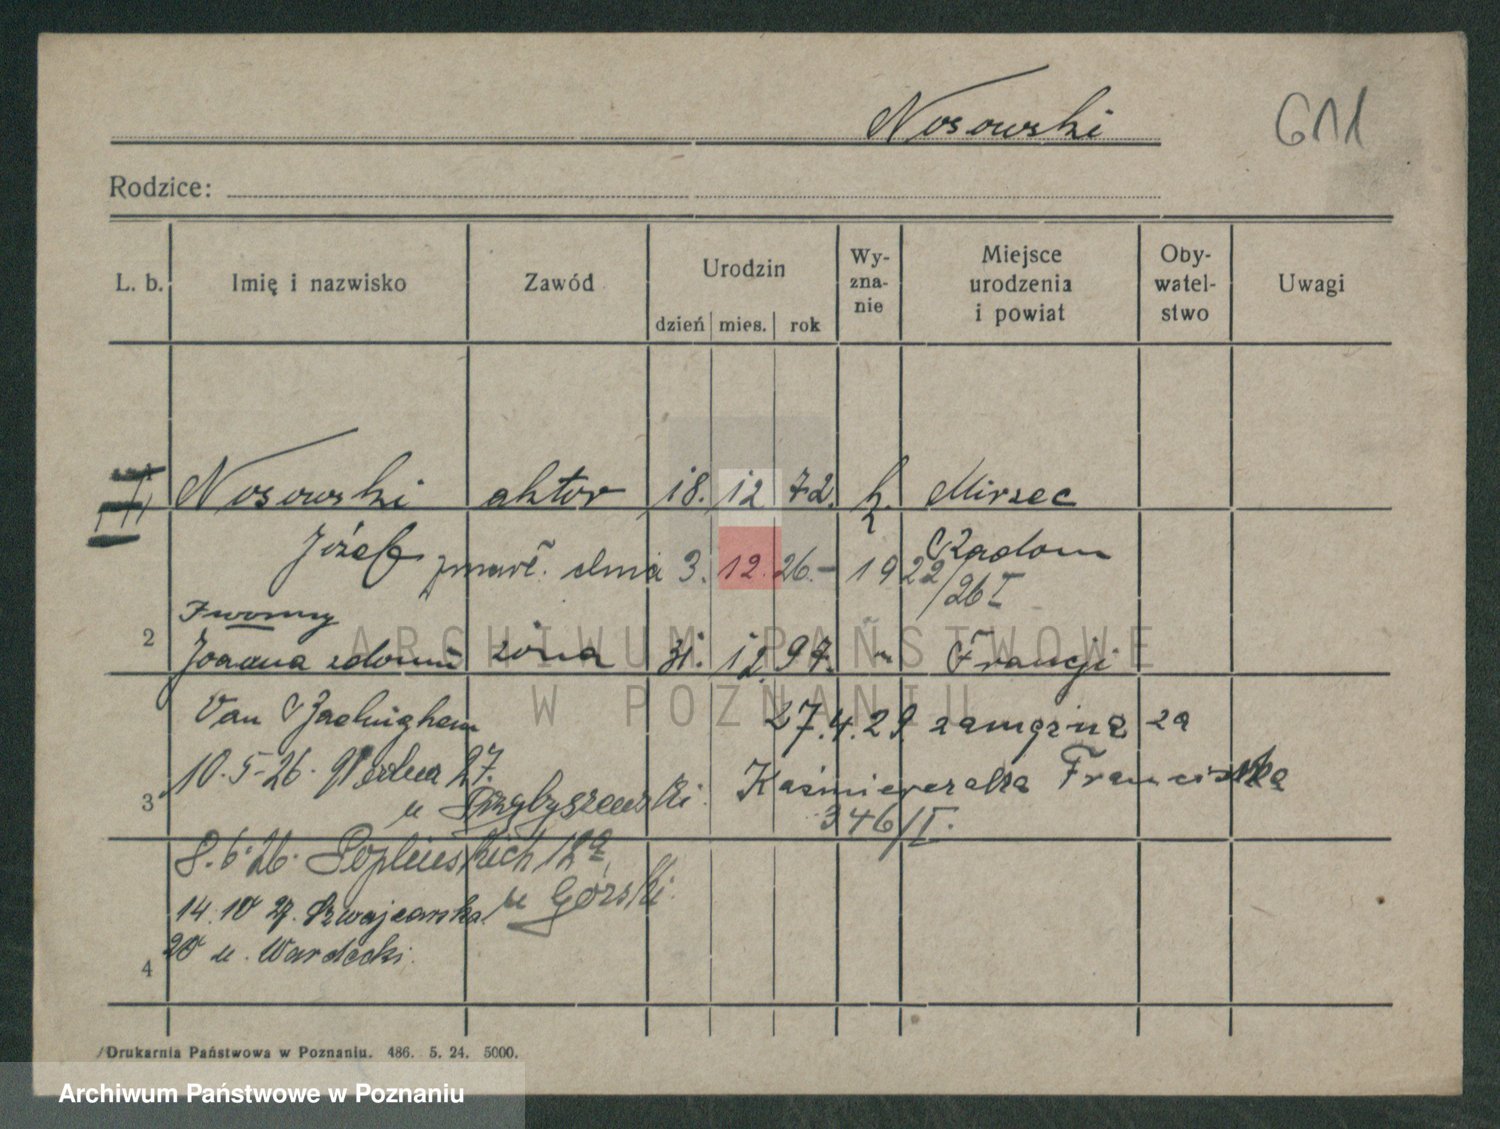 Nosowski
611
Rodzice:
L. b. Imię i nazwisko Zawód Urodzin Wy-zna-nie Miejsce urodzenia i powiat Oby-watel-stwo Uwagi
dzień mies. rok
Nosowski aktor 18. 12 72. k. Mirzec
Józef zmarł. dnia 3. 12. 26.- 1922/26 I Radom
Iwonny
2 Joanna z domu żona 31. 12. 97. " Francji
Van
27.4.29. zamężna za
10.5.26. 27.
Kaźmierczaka Franciszka
3 u Przybyszewski.
346/I.
8.6.26. Poplińskich 12a
u Górski.
14.10 27. Szwajcarska
20 u. Wardęcki.
4
Drukarnia Państwowa w Poznaniu. 486. 5. 24. 5000.
ARCHIWUM PAŃSTWOWE
W POZNANIU
Archiwum Państwowe w Poznaniu